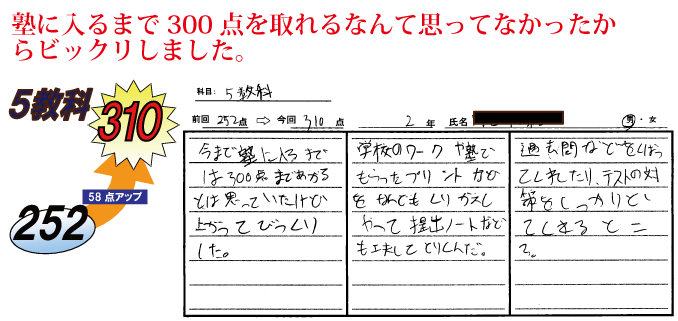 塾に入るまで300点を取れるなんて思ってなかったか
らビックリしました。
5教科
310
58点アップ
252
科目: 5教科
前回 252点 ⇨ 今回 310 点 2 年 氏名 男・女
今まで塾に入るまで
は300点まであがる
とは思っていたけど
上がってびっくり
した。
学校のワークや塾で
もらったプリントなど
を それでも くり かえし
やって 提出ノートなど
も工夫して とりくんだ。
過去問などをくばっ
てくれたり、テストの対
策をしっかりとし
てくれるところ